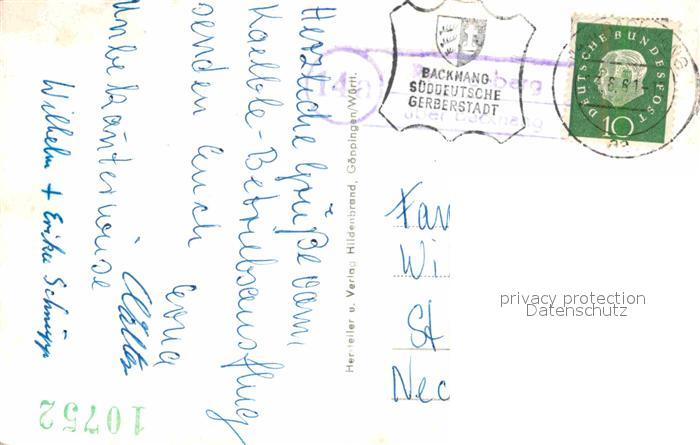 Herzliche Grüße vom
Kaelble-Betriebsausflug
senden Euch
Unbekannterweise
Wilhelm + Erika
Hersteller u. Verlag Hildenbrand, Göppingen/Württ.
(14a)
berg
über Backnang
BACKNANG
SÜDDEUTSCHE
GERBERSTADT
DEUTSCHE BUNDESPOST
10
Fam
Wi
St
Nec
privacy protection
Datenschutz
10752